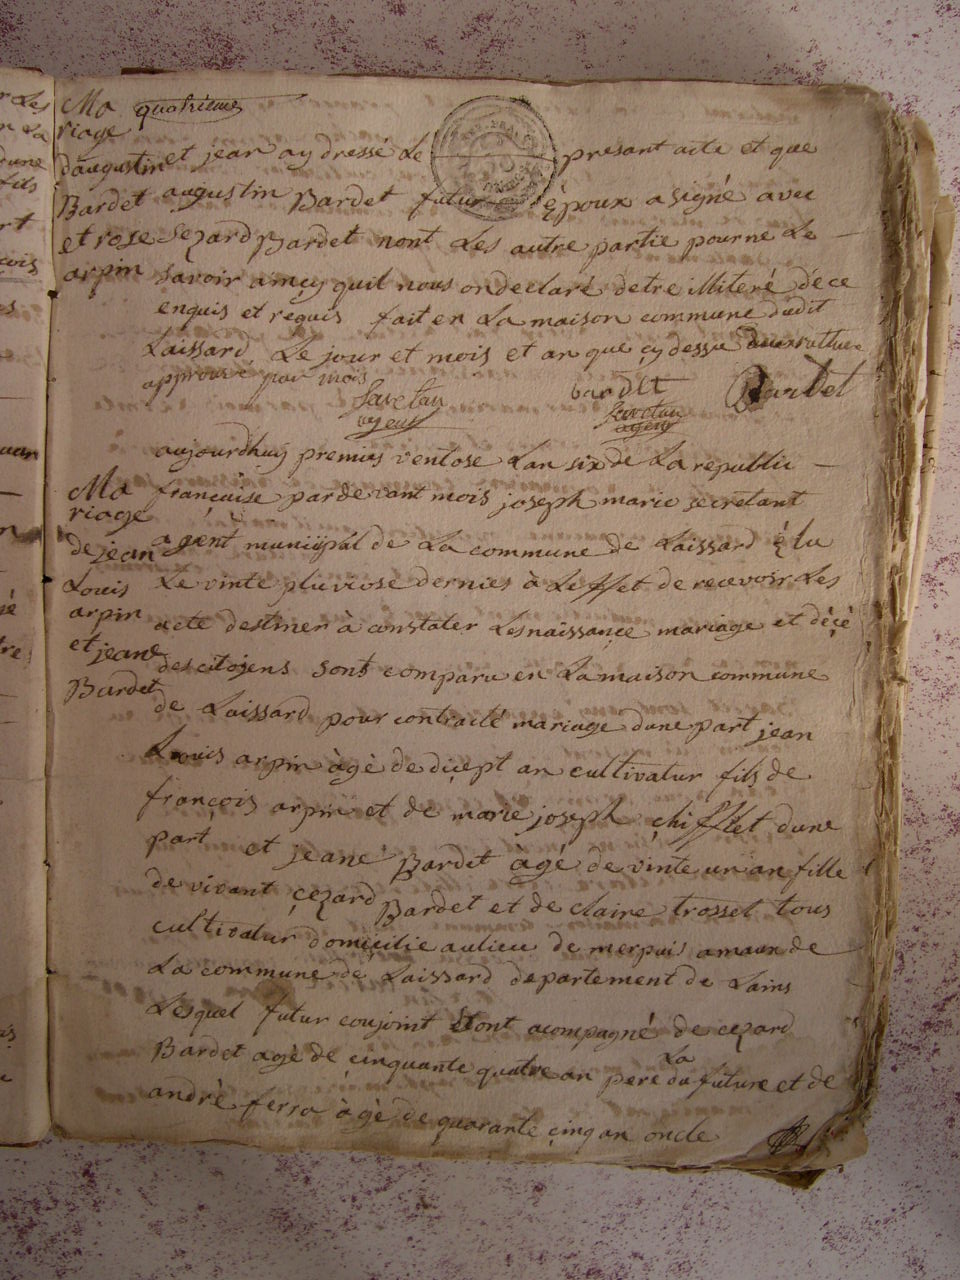 Ma quatrieme
riage
daugustin et jean ay dressé Le presant acte et que
Bardet augustin Bardet futur époux a signé avec
et rose Sezard Bardet nont Les autre partie pour ne Le
arpin savoir amcy quil nous ondeclaré detre illiteré dece
enquis et requis fait en La maison commune dudit
Laissard Le jour et mois et an que cy dessu
approuve par mois
bardet Bardet
agent
agent
aujourdhuy premier ventose Lan six de La republic
Ma françaisse pardevant mois joseph marie secretant
riage
de jean agent municipal de La commune de Laissard élu
Louis Le vinte pluviose dernier à Leffet de recevoir Les
arpin acte destiner à constater Les naissançe mariage et décé
et jeane des citoyens sont comparu en La maison commune
Bardet de Laissard pour contracté mariage dune part jean
Louis arpin àgè de diçept an cultivatur fils de
françois arpin et de marie joseph chifflet dune
part et jeane Bardet agé de vinte un an fille
de vivant çezard Bardet et de claire trosset tous
cultivatur domicilie au lieu de merpuis amaux de
La commune de Laissard departement de Lains
Lesquel futur conjoint Sont acompagné de cezard
Bardet agé de cinquante quatre an pere de La future et de
andrè ferra àgè de quarante çinq an oncle